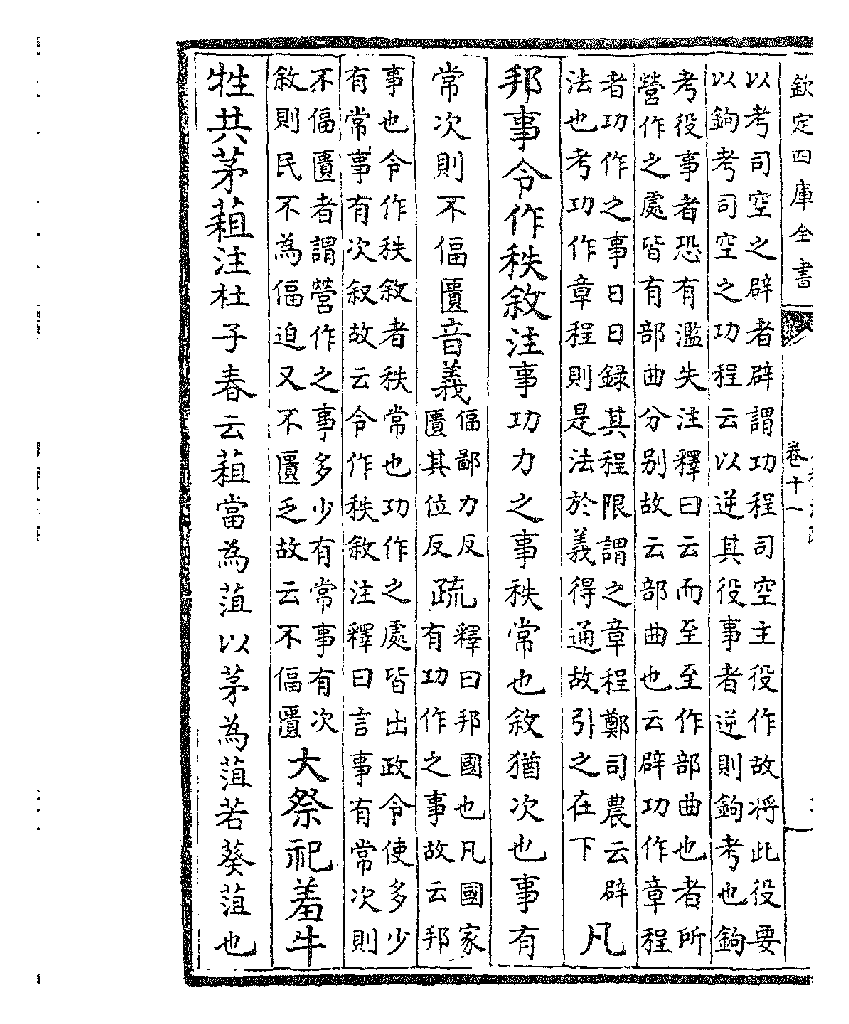 欽定四庫全書
卷十一
以考司空之辟者辟謂功程司空主役作故將此役要
以鉤考司空之功程云以逆其役事者逆則鉤考也鉤
考役事者恐有濫失注釋曰云而至至作部曲也者所
營作之處皆有部曲分别故云部曲也云辟功作章程
者功作之事日日録其程限謂之章程鄭司農云辟
法也考功作章程則是法於義得通故引之在下
凡
邦事令作秩敘注事功力之事秩常也敘猶次也事有
常次則不偪匱音義
偪鄙力反
匱其位反
疏
釋曰邦國也凡國家
有功作之事故云邦
事也令作秩敘者秩常也功作之處皆出政令使多少
有常事有次叙故云令作秩敘注釋曰言事有常次則
不偪匱者謂營作之事多少有常事有次
敘則民不為偪迫又不匱乏故云不偪匱
大祭祀羞牛
牲共茅蒩注杜子春云蒩當為菹以茅為菹若葵菹也